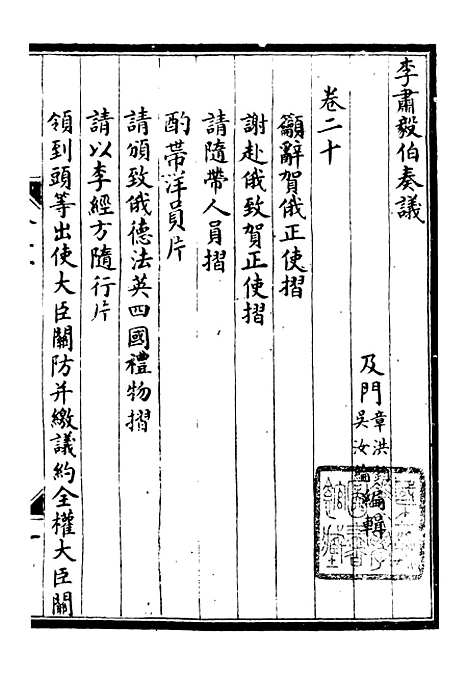 李肅毅伯奏議
及門章洪
吳汝
編輯
卷二十
籲辭賀俄正使摺
謝赴俄致賀正使摺
請隨帶人員摺
酌帶洋員片
請頒致俄德法英四國禮物摺
請以李經方隨行片
領到頭等出使大臣關防并繳議約全權大臣關